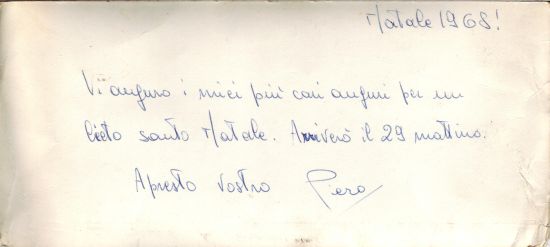 Natale 1968!
Vi auguro i miei più cari auguri per un
lieto santo Natale. Arriverò il 29 mattina.
A presto vostro Piero